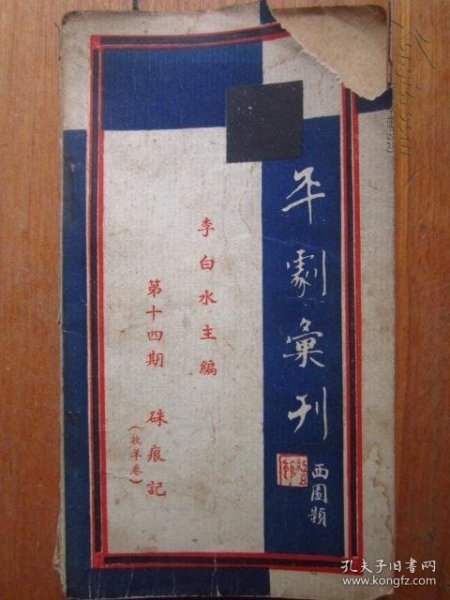 平劇彙刊
西園題
李白水主編
第十四期 硃痕記
(牧羊卷)
孔夫子旧书网
www.kongfz.com